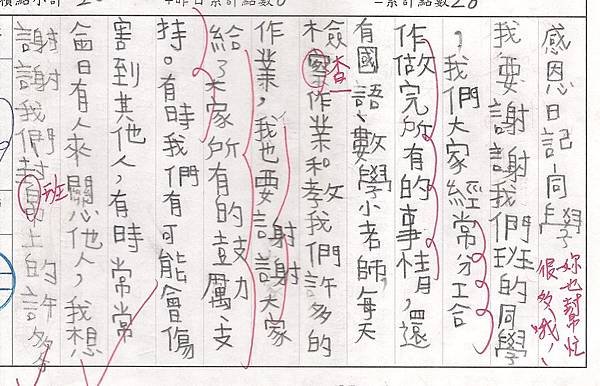 感恩日記—同學
我要謝謝我們班的同學
，我們大家經常分工合
作做完所有的事情，還
有國語、數學小老師，每天
檢察作業和教我們許多的
作業，我也要謝謝大家
給了大家所有的鼓勵、支
持。有時我們有可能會傷
害到其他人，有時常常
每日有人來關心他人，我想
謝謝我們班上的許多
妳也幫忙
很多哦！
查
班
累計點數28